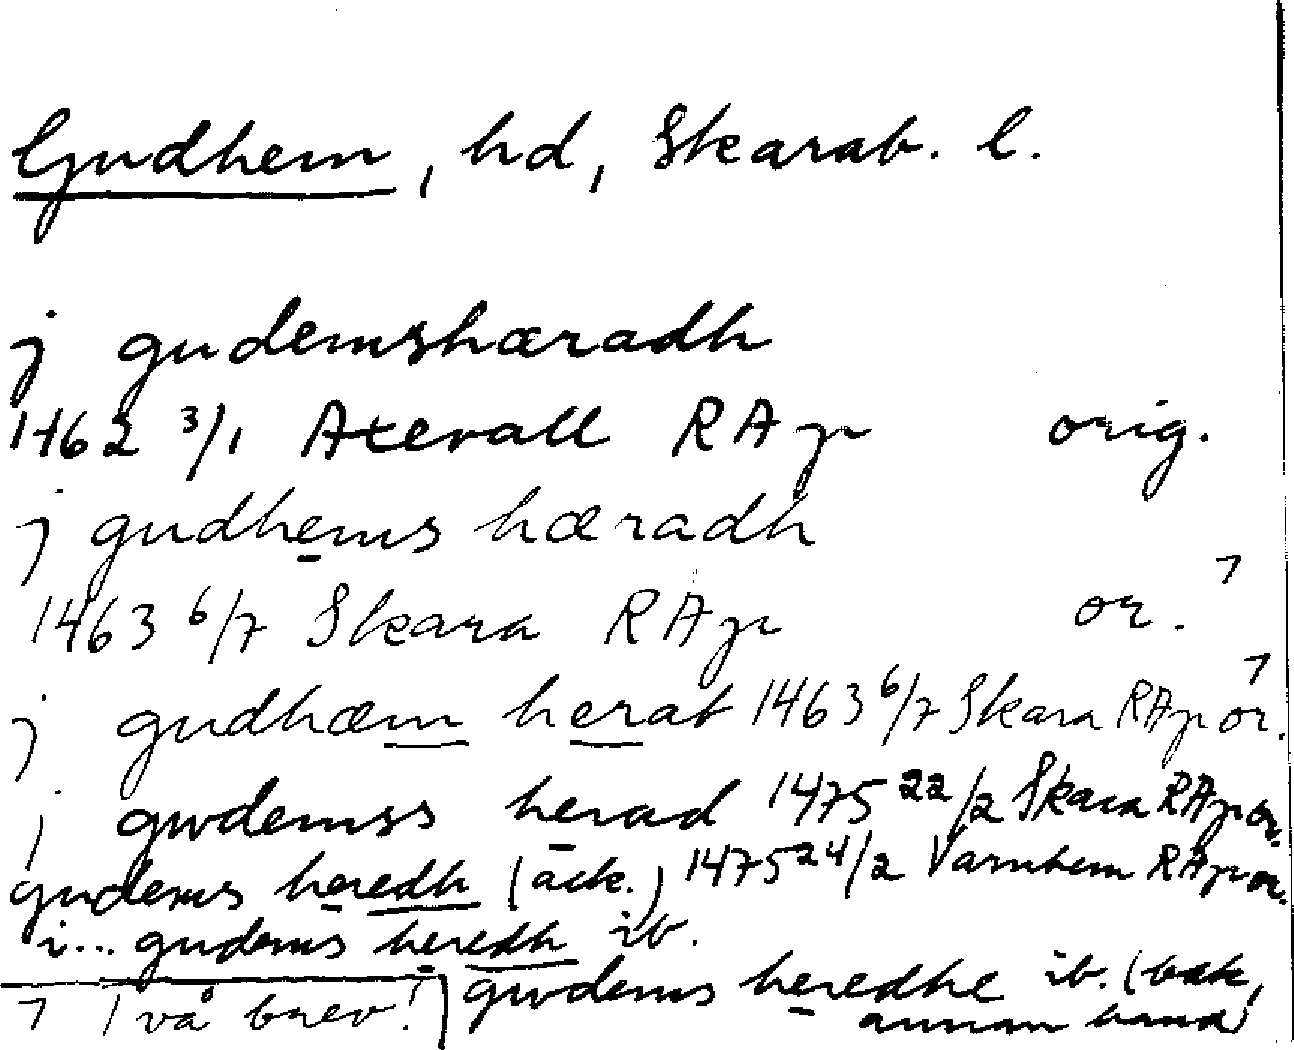 Gudhem, hd, Skarab. l.
j gudemshæradh
1462 3/1 Axevall RAp orig.
j gudhems hæradh
1463 6/7 Skara RAp or. ⁊
j gudhæm herat 1463 6/7 Skara RAp or. ⁊
j gwdemss herad 1475 22/2 Skara RAp or.
gudems heredh (ack.) 1475 24/2 Varnhem RAp or.
i... gudems heredh ib.
gwdems heredhe ib. (bak, annan hand)
⁊ Två brev!